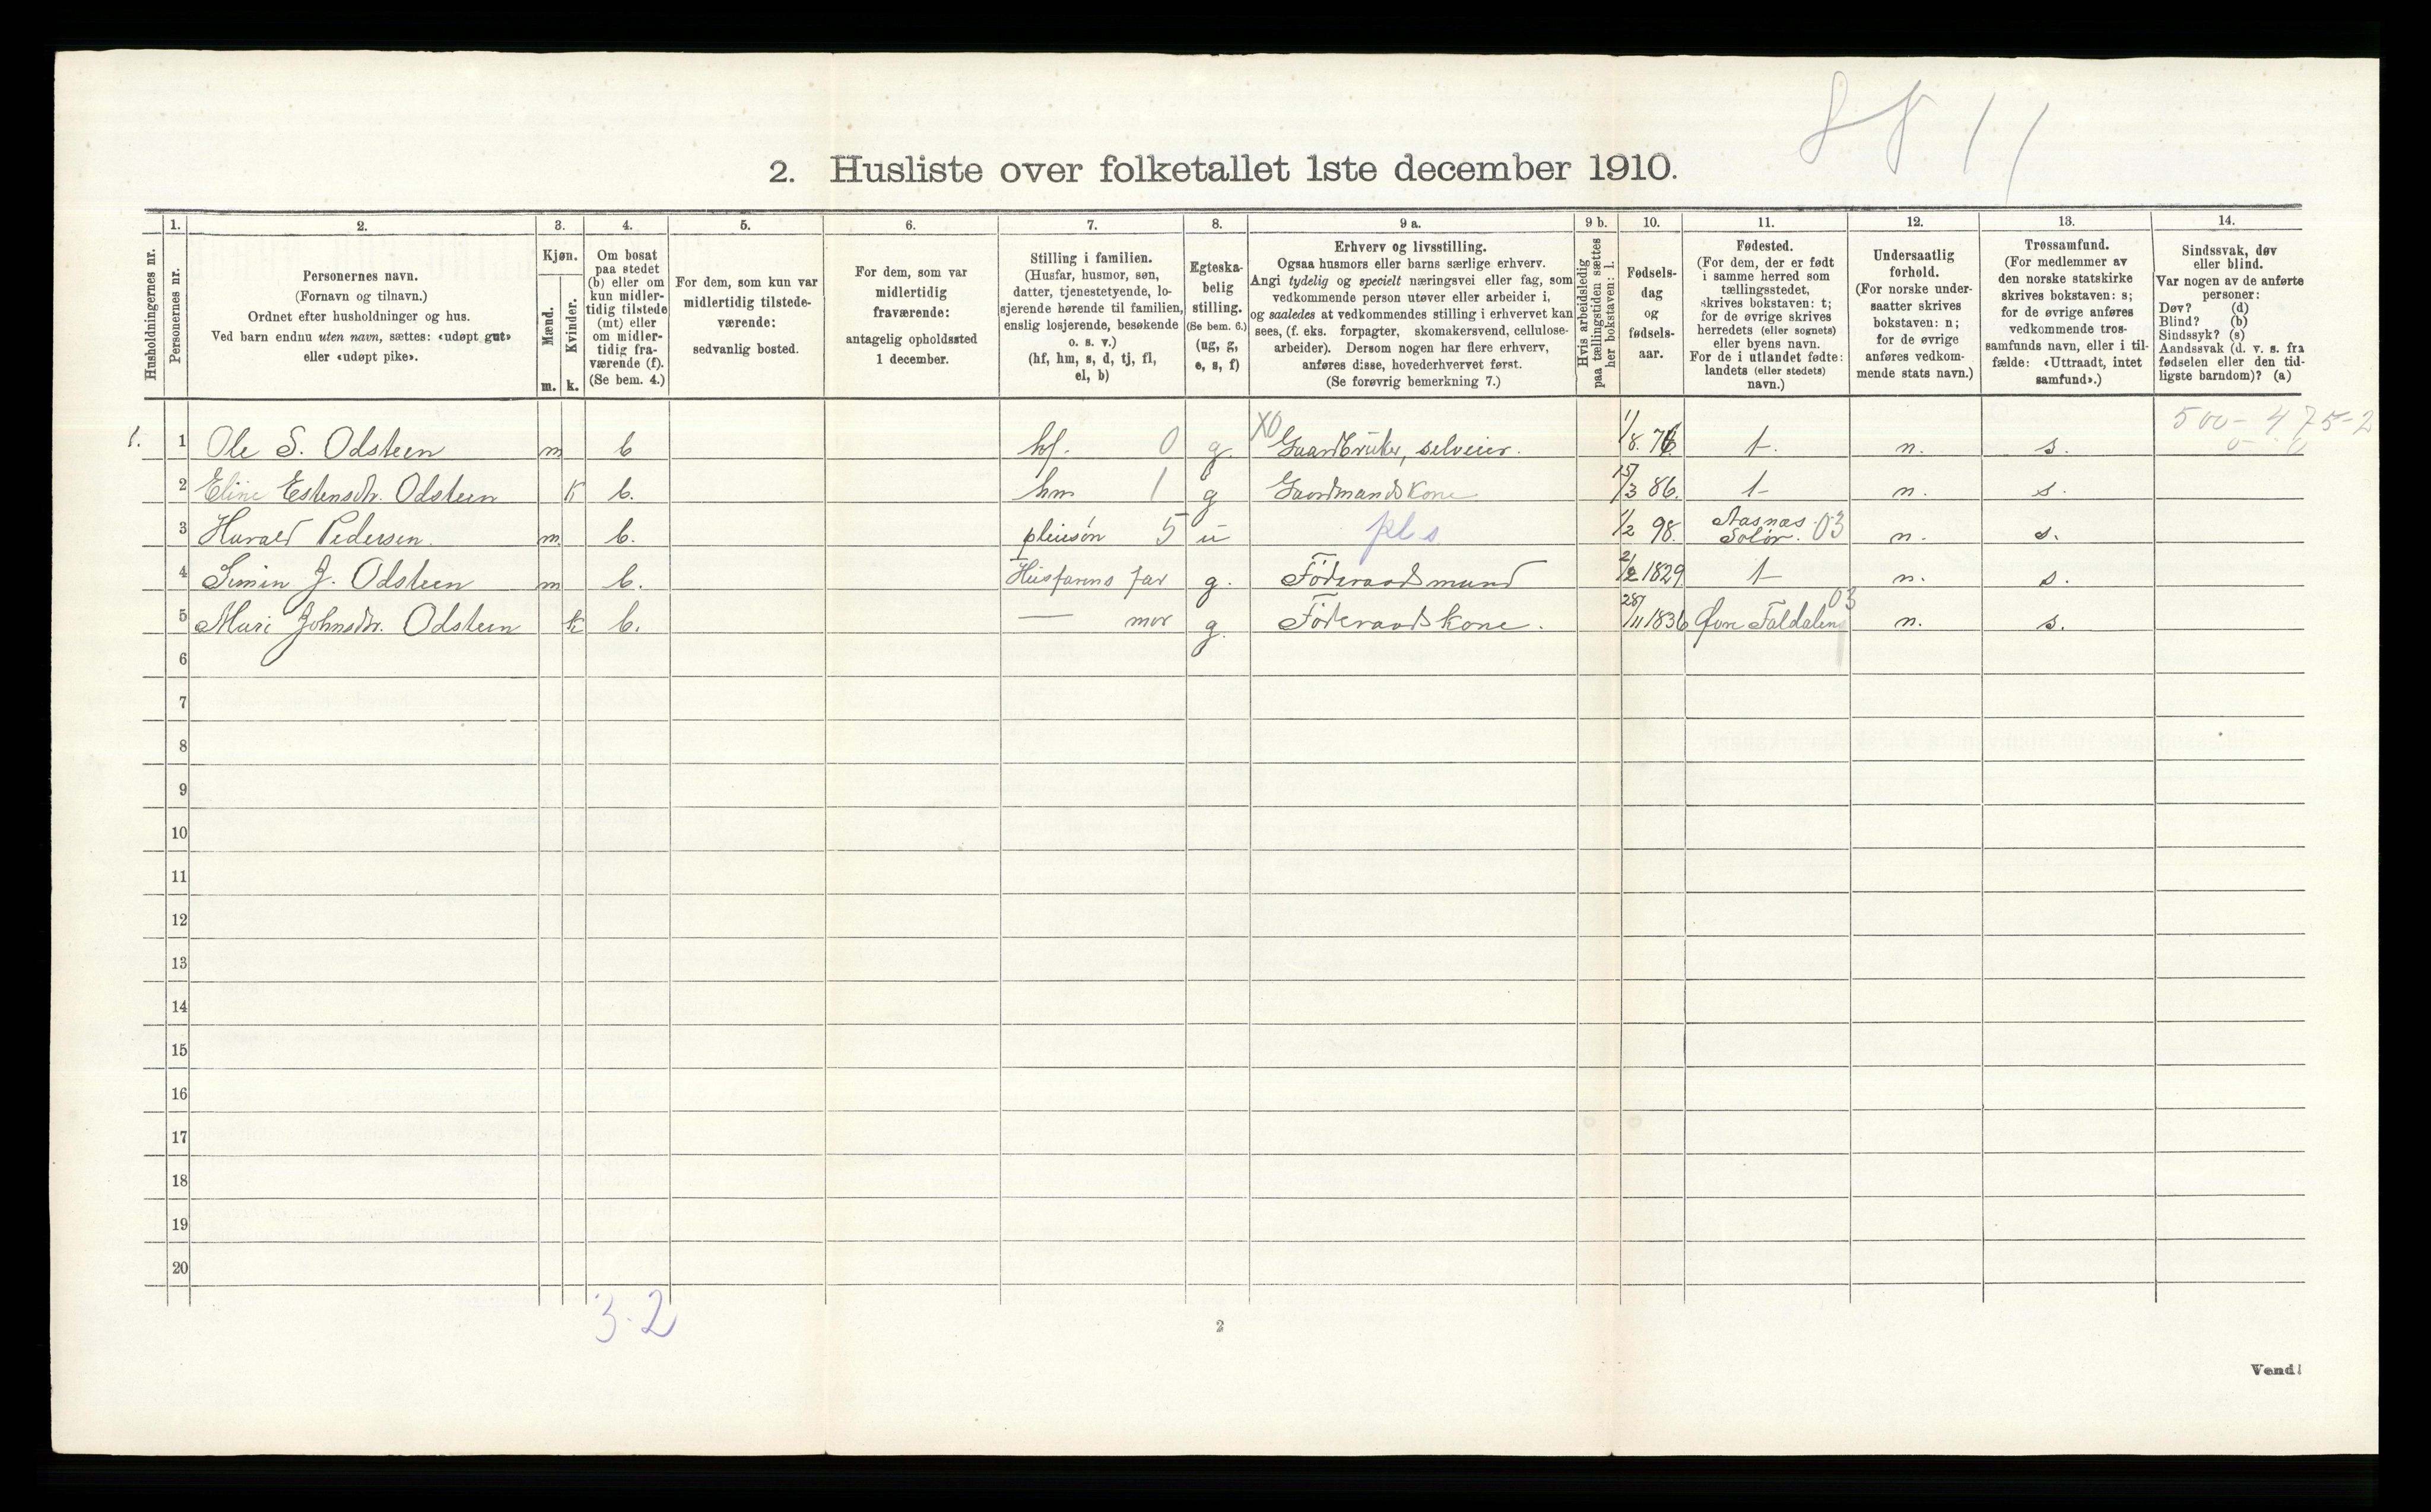 2. Husliste over folketallet 1ste december 1910.
Husholdningernes nr.
1.
Personernes nr.
2.
Personernes navn.
(Fornavn og tilnavn.)
Ordnet efter husholdninger og hus.
Ved barn endnu uten navn, sættes: «udøpt gut»
eller «udøpt pike».
3.
Kjøn.
Mænd.
m.
Kvinder.
k.
4.
Om bosat
paa stedet
(b) eller om
kun midler-
tidig tilstede
(mt) eller
om midler-
tidig fra-
værende (f).
(Se bem. 4.)
5.
For dem, som kun var
midlertidig tilstede-
værende:
sedvanlig bosted.
6.
For dem, som var
midlertidig
fraværende:
antagelig opholdssted
1 december.
7.
Stilling i familien.
(Husfar, husmor, søn,
datter, tjenestetyende, lo-
sjerende hørende til familien,
enslig losjerende, besøkende
o. s. v.)
(hf, hm, s, d, tj, fl,
el, b)
8.
Egteska-
belig
stilling.
(Se bem. 6.)
(ug, g,
e, s, f)
9 a.
Erhverv og livsstilling.
Ogsaa husmors eller barns særlige erhverv.
Angi tydelig og specielt næringsvei eller fag, som
vedkommende person utøver eller arbeider i,
og saaledes at vedkommendes stilling i erhvervet kan
sees, (f. eks. forpagter, skomakersvend, cellulose-
arbeider). Dersom nogen har flere erhverv,
anføres disse, hovederhvervet først.
(Se forøvrig bemerkning 7.)
9 b.
Hvis arbeidsledig
paa tællingstiden sættes
her bokstaven: l.
10.
Fødsels-
dag
og
fødsels-
aar.
11.
Fødested.
(For dem, der er født
i samme herred som
tællingsstedet,
skrives bokstaven: t;
for de øvrige skrives
herredets (eller sognets)
eller byens navn.
For de i utlandet fødte:
landets (eller stedets)
navn.)
12.
Undersaatlig
forhold.
(For norske under-
saatter skrives
bokstaven: n;
for de øvrige
anføres vedkom-
mende stats navn.)
13.
Trossamfund.
(For medlemmer av
den norske statskirke
skrives bokstaven: s;
for de øvrige anføres
vedkommende tros-
samfunds navn, eller i til-
fælde: «Uttraadt, intet
samfund».)
14.
Sindssvak, døv
eller blind.
Var nogen av de anførte
personer:
Døv? (d)
Blind? (b)
Sindssyk? (s)
Aandssvak (d. v. s. fra
fødselen eller den tid-
ligste barndom)? (a)
500-475-2
1. 1 Ole S. Odsteen m b hf. 0 g. X0 Gaardbruker, selveier. 1/8 76 t. n. s.
2 Eline Estensdtr. Odsteen k b. hm 1 g Gaardmandskone 15/3 86. t n. s.
3 Harald Pedersen. m. b. pleiesøn 5 u pl s 1/2 98. Aasnæs Solør. 03 n. s.
4 Simen J. Odsteen m b. Husfarens far g. Føderaadsmand 2/2 1829. t n. s.
5 Mari Johnsdtr. Odsteen k b. — mor g. Føderaadskone. 28/11 1836 Øvre Foldalen 03 n. s.
6
7
8
9
10
11
12
13
14
15
16
17
18
19
20
3-2
2
Vend!